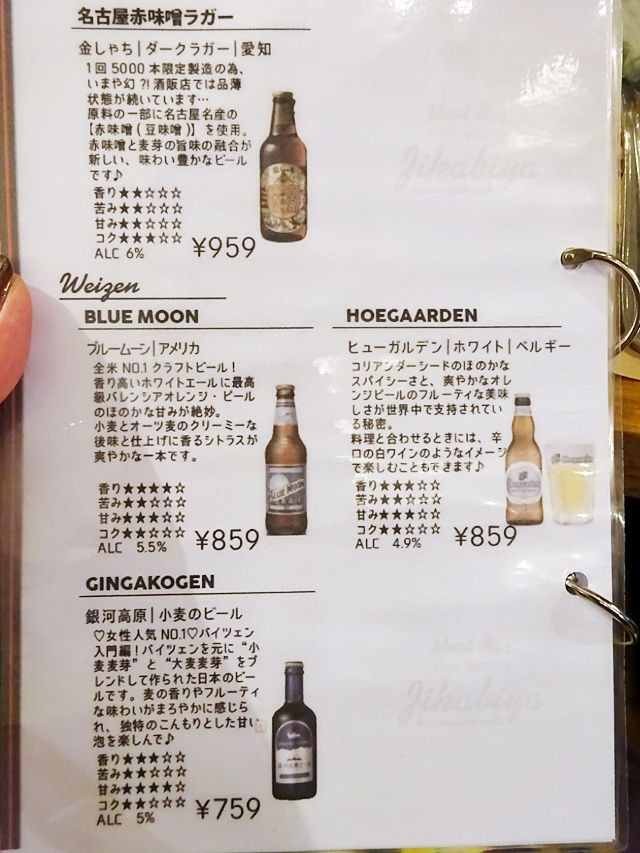 名古屋赤味噌ラガー
金しゃち|ダークラガー|愛知
1回5000本限定製造の為、
いまや幻?!酒販店では品薄
状態が続いています…
原料の一部に名古屋名産の
【赤味噌(豆味噌)】を使用。
赤味噌と麦芽の旨味の融合が
新しい、味わい豊かなビール
です♪
香り★★☆☆☆
苦み★★☆☆☆
甘み★★☆☆☆
コク★★★☆☆
ALC 6%
¥959
Meat Bar
Jikabiya
Weizen
BLUE MOON
ブルームーン|アメリカ
全米NO.1クラフトビール!
香り高いホワイトエールに最高
級バレンシアオレンジ・ピール
のほのかな甘みが絶妙。
小麦とオーツ麦のクリーミーな
後味と仕上げに香るシトラスが
爽やかな一本です。
香り★★★★☆
苦み★☆☆☆☆
甘み★★★☆☆
コク★★☆☆☆
ALC 5.5%
¥859
BLUE MOON
HOEGAARDEN
ヒューガルデン|ホワイト|ベルギー
コリアンダーシードのほのかな
スパイシーさと、爽やかなオレ
ンジピールのフルーティな美味
しさが世界中で支持されてい
る秘密。
料理と合わせるときには、辛
口の白ワインのようなイメージ
で楽しむこともできます♪
香り★★★☆☆
苦み★★☆☆☆
甘み★★★☆☆
コク★★☆☆☆
ALC 4.9%
¥859
GINGAKOGEN
銀河高原|小麦のビール
♡女性人気NO.1♡バイツェン
入門編!バイツェンを元に“小
麦麦芽”と“大麦麦芽”をブ
レンドして作られた日本のビー
ルです。麦の香りやフルーティ
な味わいがまろやかに感じら
れ、独特のこんもりとした甘い
泡を楽しんで♪
香り★★★☆☆
苦み★★☆☆☆
甘み★★★★☆
コク★★☆☆☆
ALC 5%
¥759
Meat Bar
Jikabiya